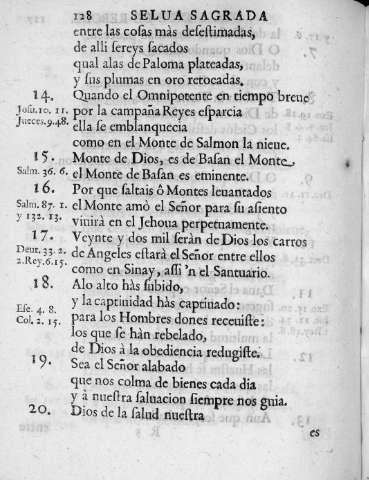 128 SELUA SAGRADA
entre las cosas màs desestimadas,
de alli sereys sacados
qual alas de Paloma plateadas,
y sus plumas en oro retocadas.
14. Quando el Omnipotente en tiempo breue
Josu. 10. 11. por la campaña Reyes esparcia
Jueces. 9. 48. ella se emblanquecia
como en el Monte de Salmon la nieue.
15. Monte de Dios, es de Basan el Monte
Salm. 36. 6. el Monte de Basan es eminente.
16. Por que saltais ô Montes leuantados
Salm. 87. 1. el Monte amò el Señor para su asiento
y 132. 13. viuirà en el Jehoua perpetuamente.
17. Veynte y dos mil seràn de Dios los carros
Deut. 33. 2. de Angeles estarà el Señor entre ellos
2. Rey. 6. 15. como en Sinay, assi 'n el Santuario.
18. Alo alto hàs subido,
y la captiuidad hàs captiuado:
Efe. 4. 8. para los Hombres dones receuiste:
Col. 2. 15. los que se hàn rebelado,
de Dios à la obediencia redugiste.
19. Sea el Señor alabado
que nos colma de bienes cada dia
y à nuestra saluacion siempre nos guia.
20. Dios de la salud nuestra
es